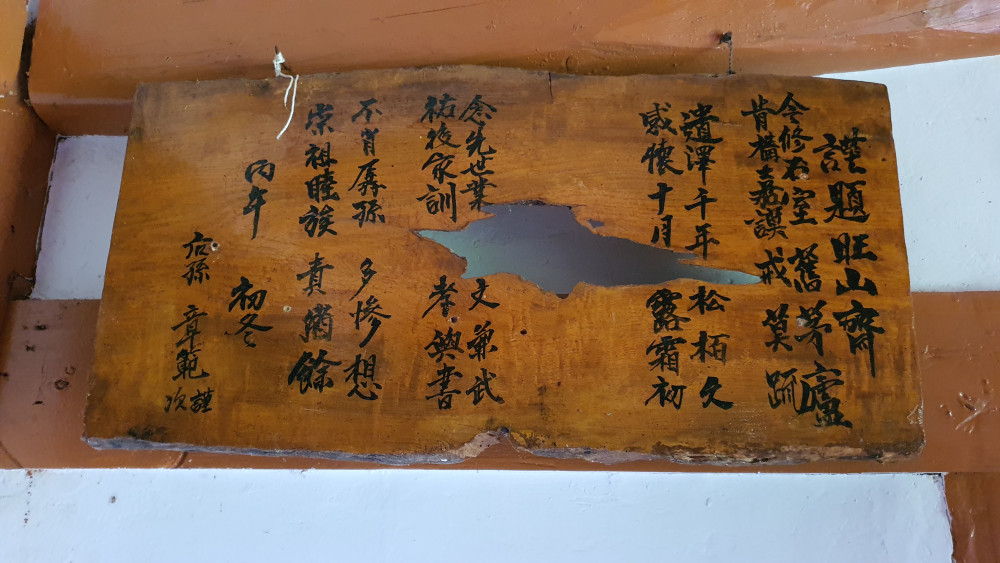 謹題旺山齋
今修石室舊茅廬
肯構嘉謨戒莫䟽
遺澤千年松栢久
感懷十月露霜初
念先世業文兼武
祐後家訓孝與書
不肖孱孫多慘想
崇祖睦族責猶餘
丙午 初冬
后孫 章範 謹
次